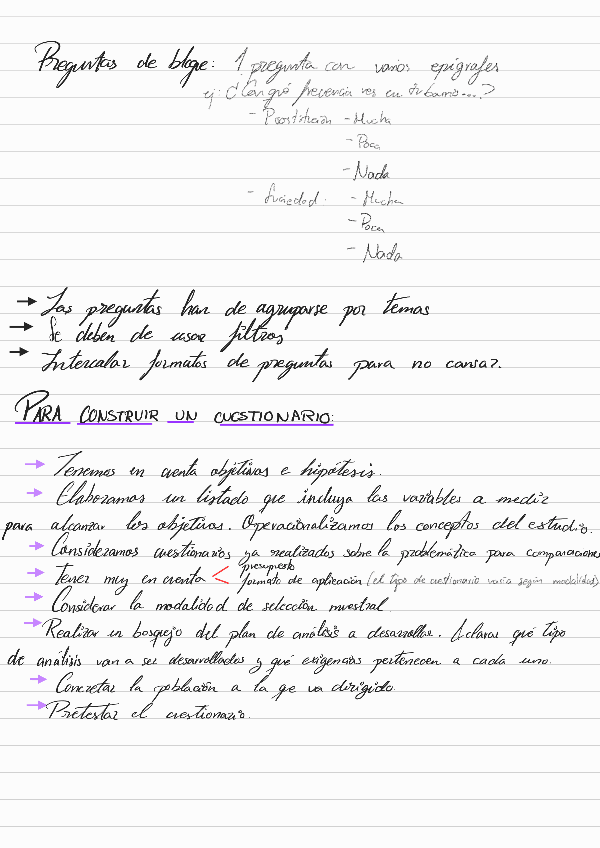 Preguntas de bloqe: 1 pregunta con varios epígrafes
ej: ¿Con qué frecuencia ves en tu barrio...?
- Prostitución - Mucha
- Poca
- Nada
- Suciedad. - Mucha
- Poca
- Nada
→ Las preguntas han de agruparse por temas
→ Se deben de usar filtros
→ Intercalar formatos de preguntas para no cansar.
PARA CONSTRUIR UN CUESTIONARIO:
→ Tenemos en cuenta objetivos e hipótesis.
→ Elaboramos un listado que incluya las variables a medir
para alcanzar los objetivos. Operacionalizamos los conceptos del estudio.
→ Consideramos cuestionarios ya realizados sobre la problemática para comparaciones
→ Tener muy en cuenta < presupuesto
formato de aplicación (el tipo de cuestionario varía según modalidad)
→ Considerar la modalidad de selección muestral
→ Realizar un bosquejo del plan de análisis a desarrollar. Aclarar qué tipo
de análisis van a ser desarrollados y qué exigencias pertenecen a cada uno.
→ Concretar la población a la qe va dirigido.
→ Pretestar el cuestionario.